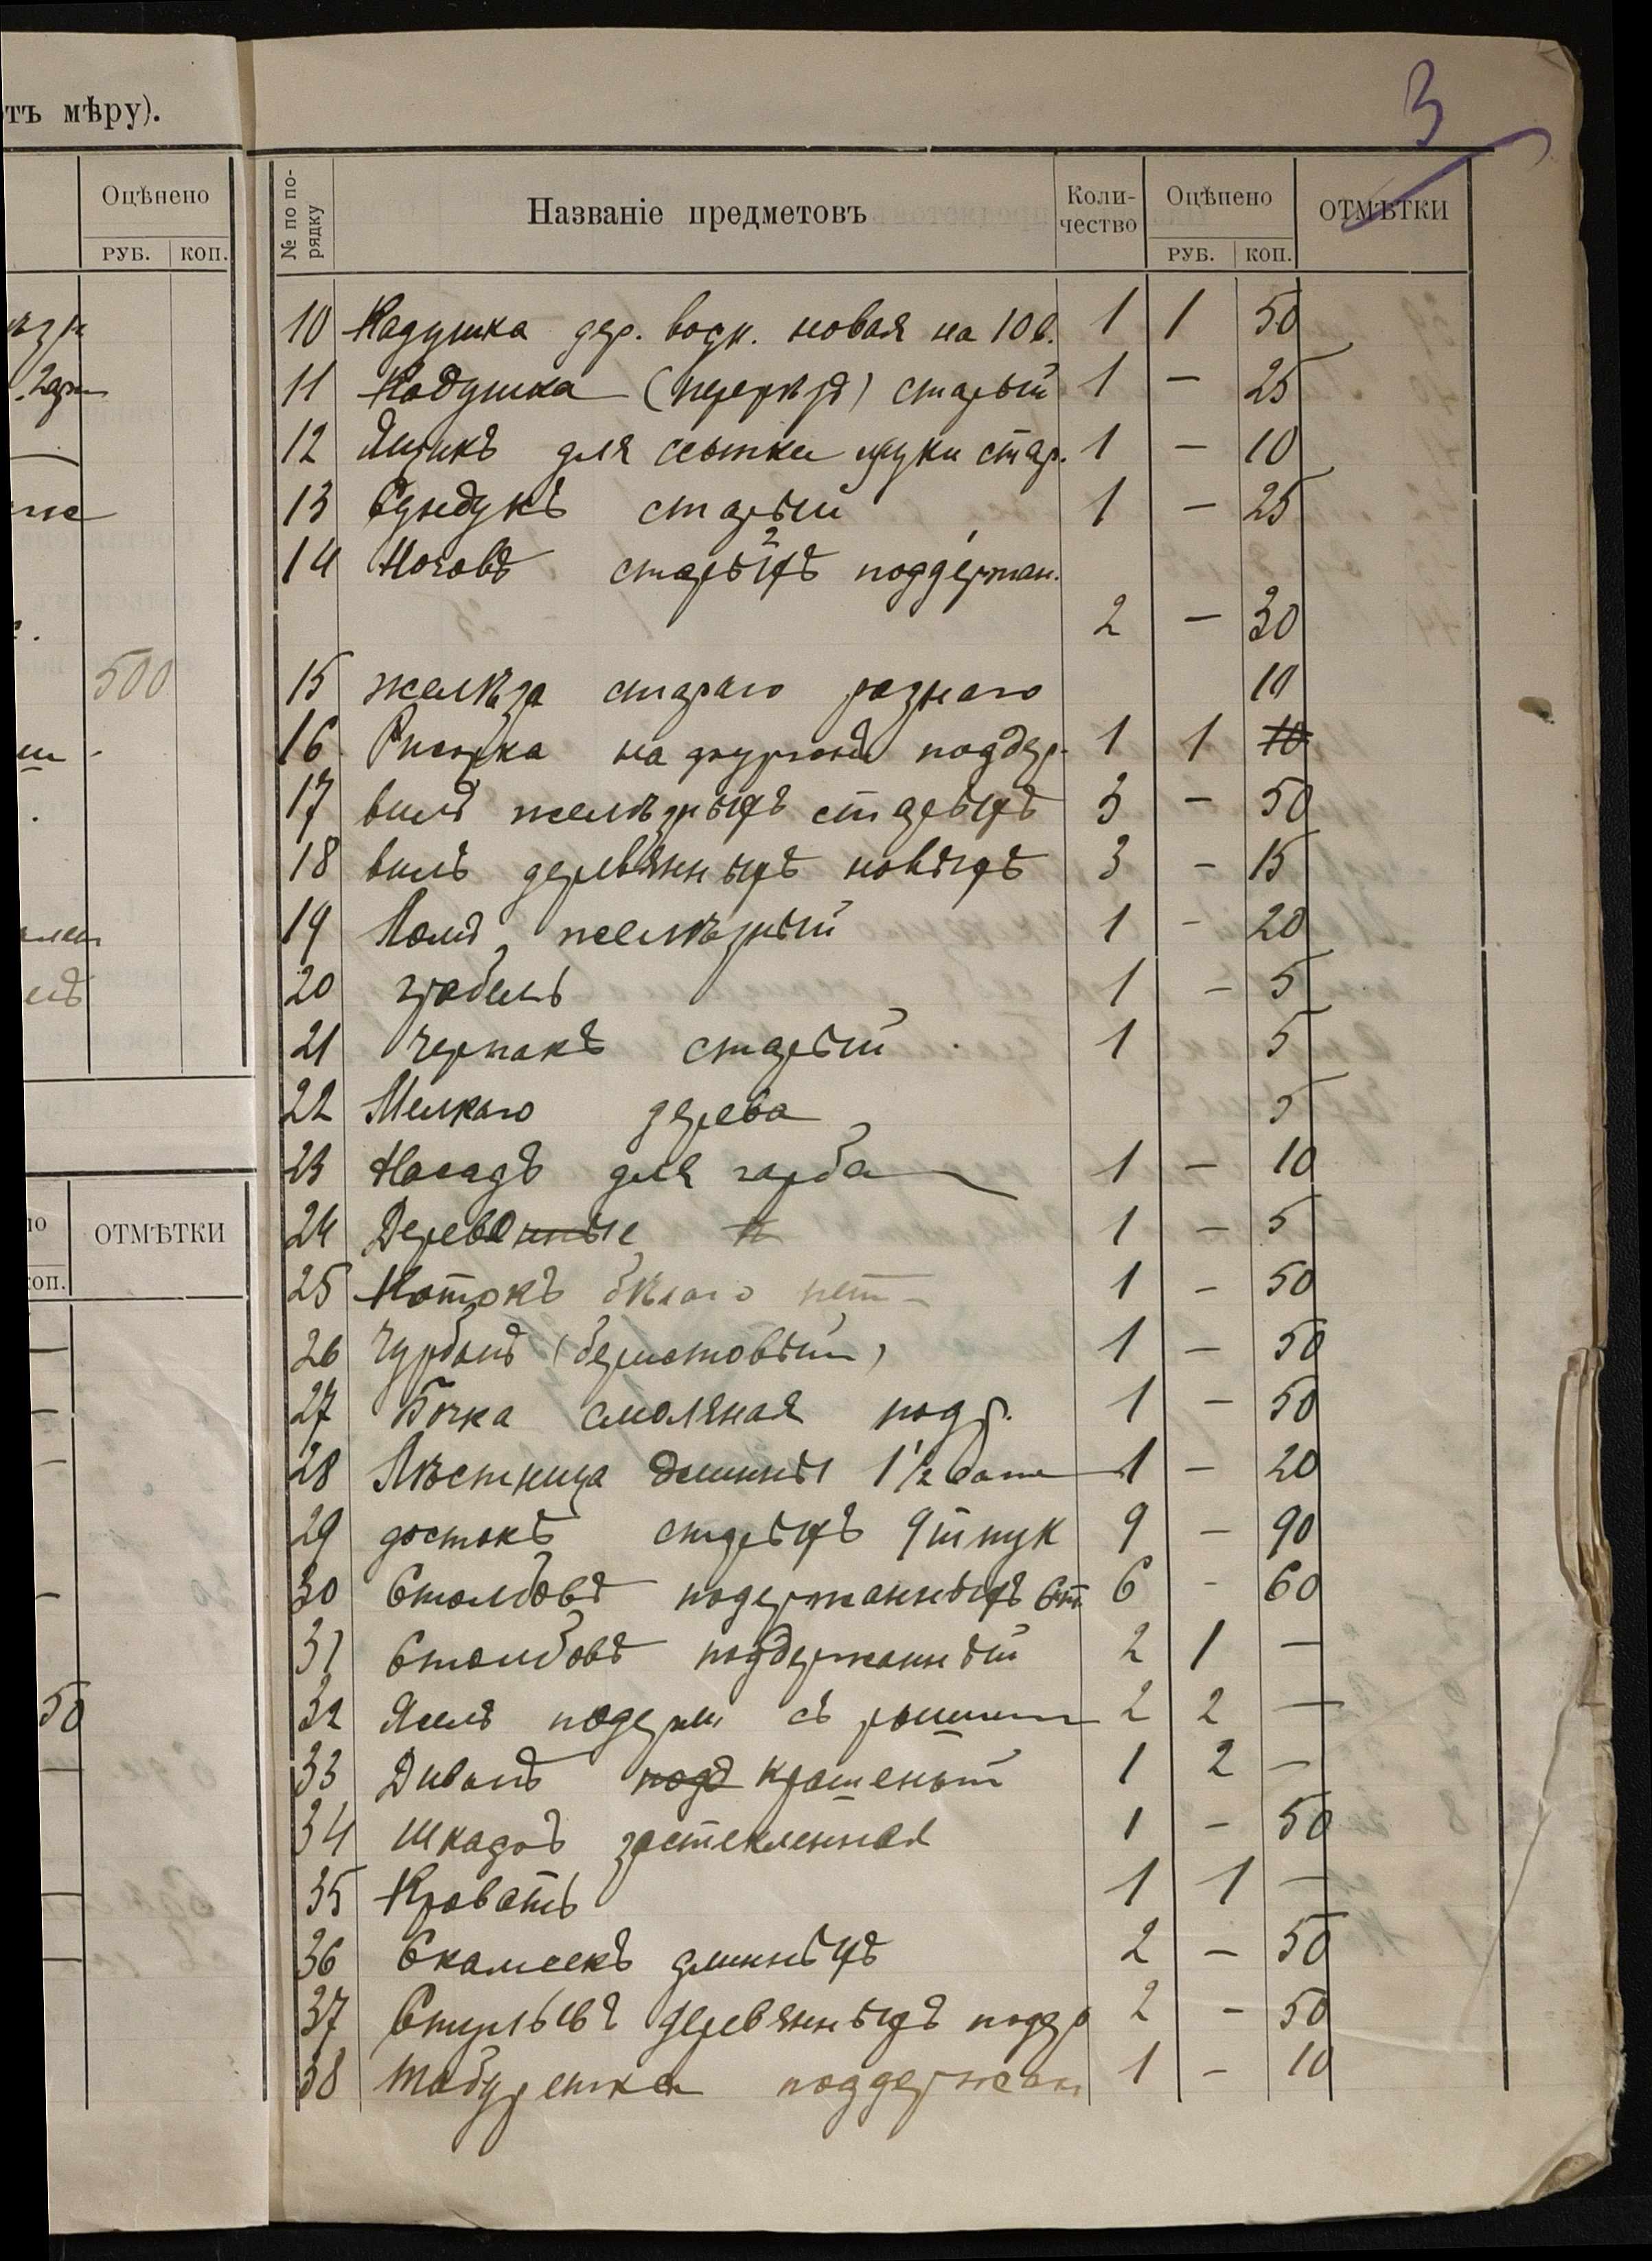 отъ мѣру).
Оцѣнено
РУБ. КОП.
500
ОТМѢТКИ
КОП.
50
3
№ по по-
рядку
Названіе предметовъ
Коли-
чество
Оцѣнено
РУБ. КОП.
ОТМѢТКИ
10 Кадушка дер. водн. новая на 10 в. 1 1 50
11 Кадушка старый 1 – 25
12 Ящикъ для ссыпки муки стар. 1 – 10
13 Сундукъ старый 1 – 25
14 Ночовъ старыхъ 2 поддержан.
2 – 30
15 желѣза стараго разнаго 10
16 на поддер. 1 1 10
17 вилъ желѣзныхъ старыхъ 3 – 50
18 вилъ деревянныхъ новыхъ 3 – 15
19 Ломъ желѣзный 1 – 20
20 грабель 1 – 5
21 Черпакъ старый 1 5
22 Мелкаго дерева 5
23 для гарба 1 – 10
24 Деревянные 1 – 5
25 бѣлаго 1 – 50
26 Чурбанъ (берестовый) 1 – 50
27 Бочка смоляная подр. 1 – 50
28 Лѣстница длинны 1 1/2 1 – 20
29 достокъ старыхъ 9 штук 9 – 90
30 Столбовъ подержанныхъ 6 шт 6 – 60
31 Столбовъ поддержанный 2 1 –
32 Ясля подерж съ 2 2 –
33 Диванъ подд крашеный 1 2 –
34 Шкафъ застекленная 1 – 50
35 Кровать 1 1 –
36 Скамеекъ длинныхъ 2 – 50
37 Стульевъ деревянныхъ поддр 2 – 50
38 Табуретка поддержан 1 – 10